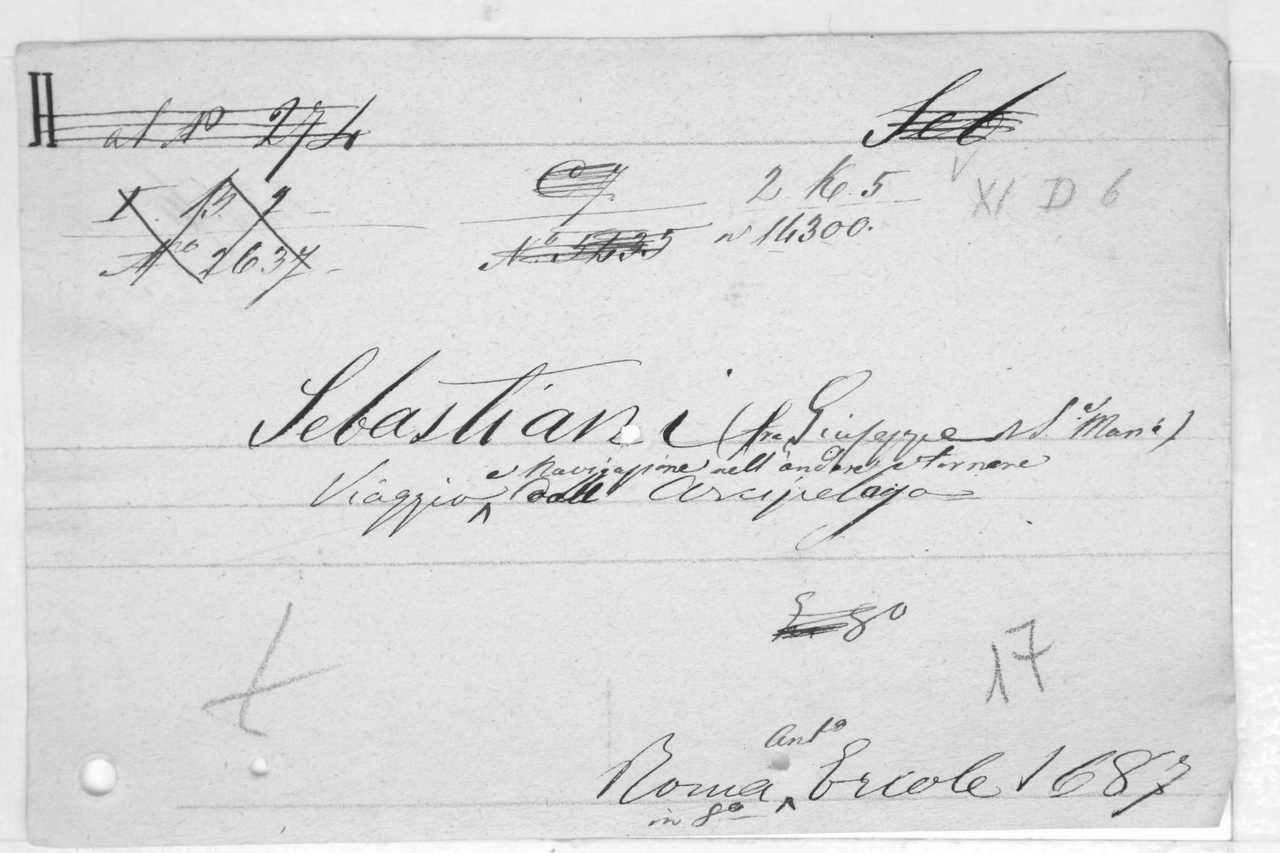 H al N° 274 Seb
X. B. 2 C 7 2 K. 5 XI D 6
N.ro 2637 N.° 5535 n° 14300.
Sebastiani (fra Giuseppe di S.a Maria)
e Navigazione nell'andare, e tornare
Viaggio dall Arcipelago
8°
17
Ant.°
Roma Ercole 1687
in 8°